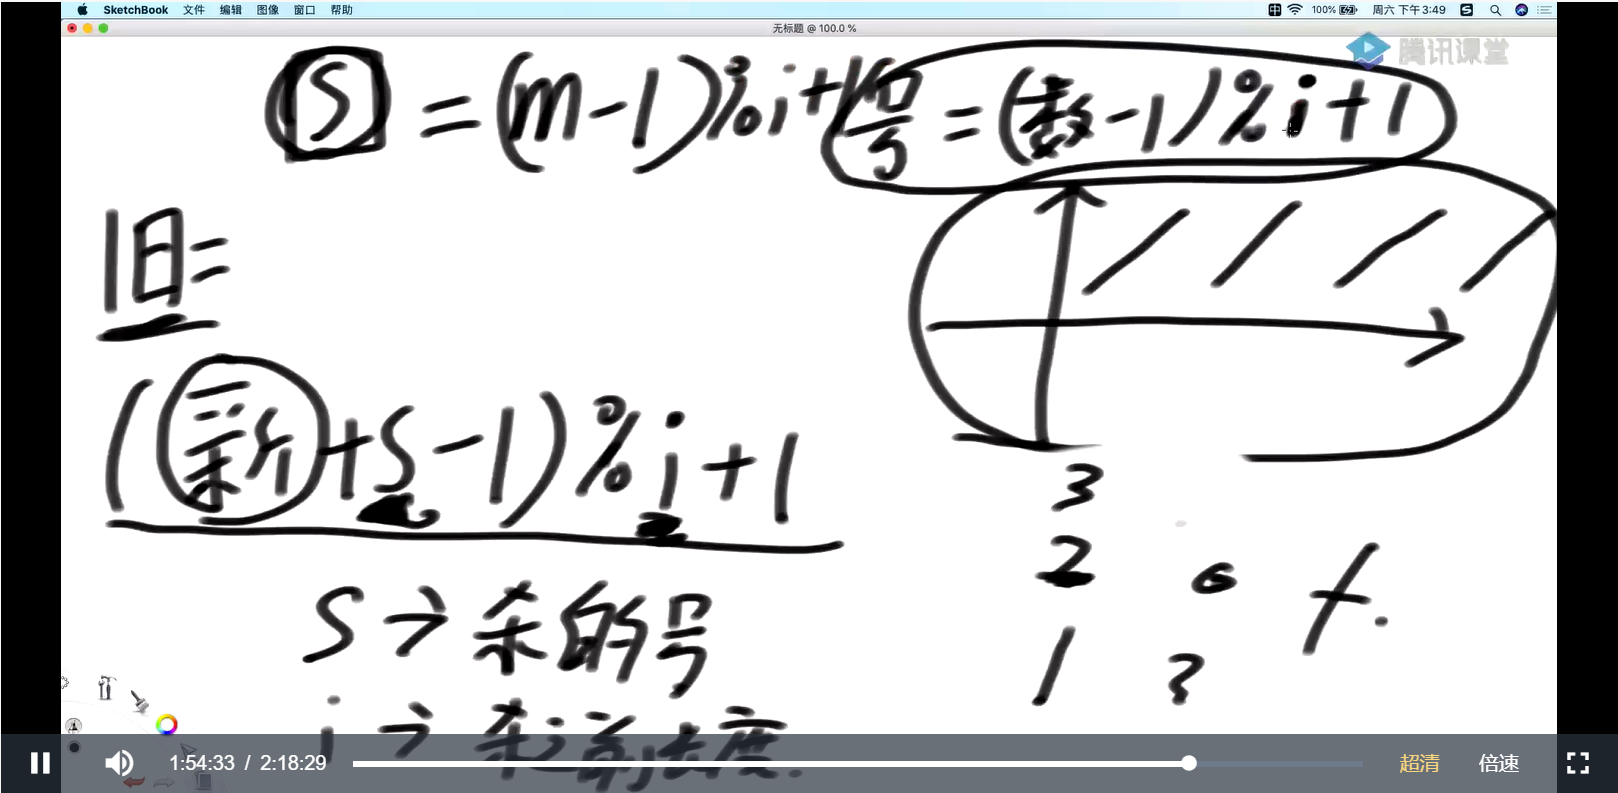 SketchBook 文件 编辑 图像 窗口 帮助 100% 周六 下午3:49
无标题 @ 100.0 %
腾讯课堂
S = (m-1)%i+1
号 = (数-1)%i+1
旧=
(新+S-1)%i+1
S → 杀的号
i → 杀前长度.
3
2
1
1:54:33 / 2:18:29 超清 倍速